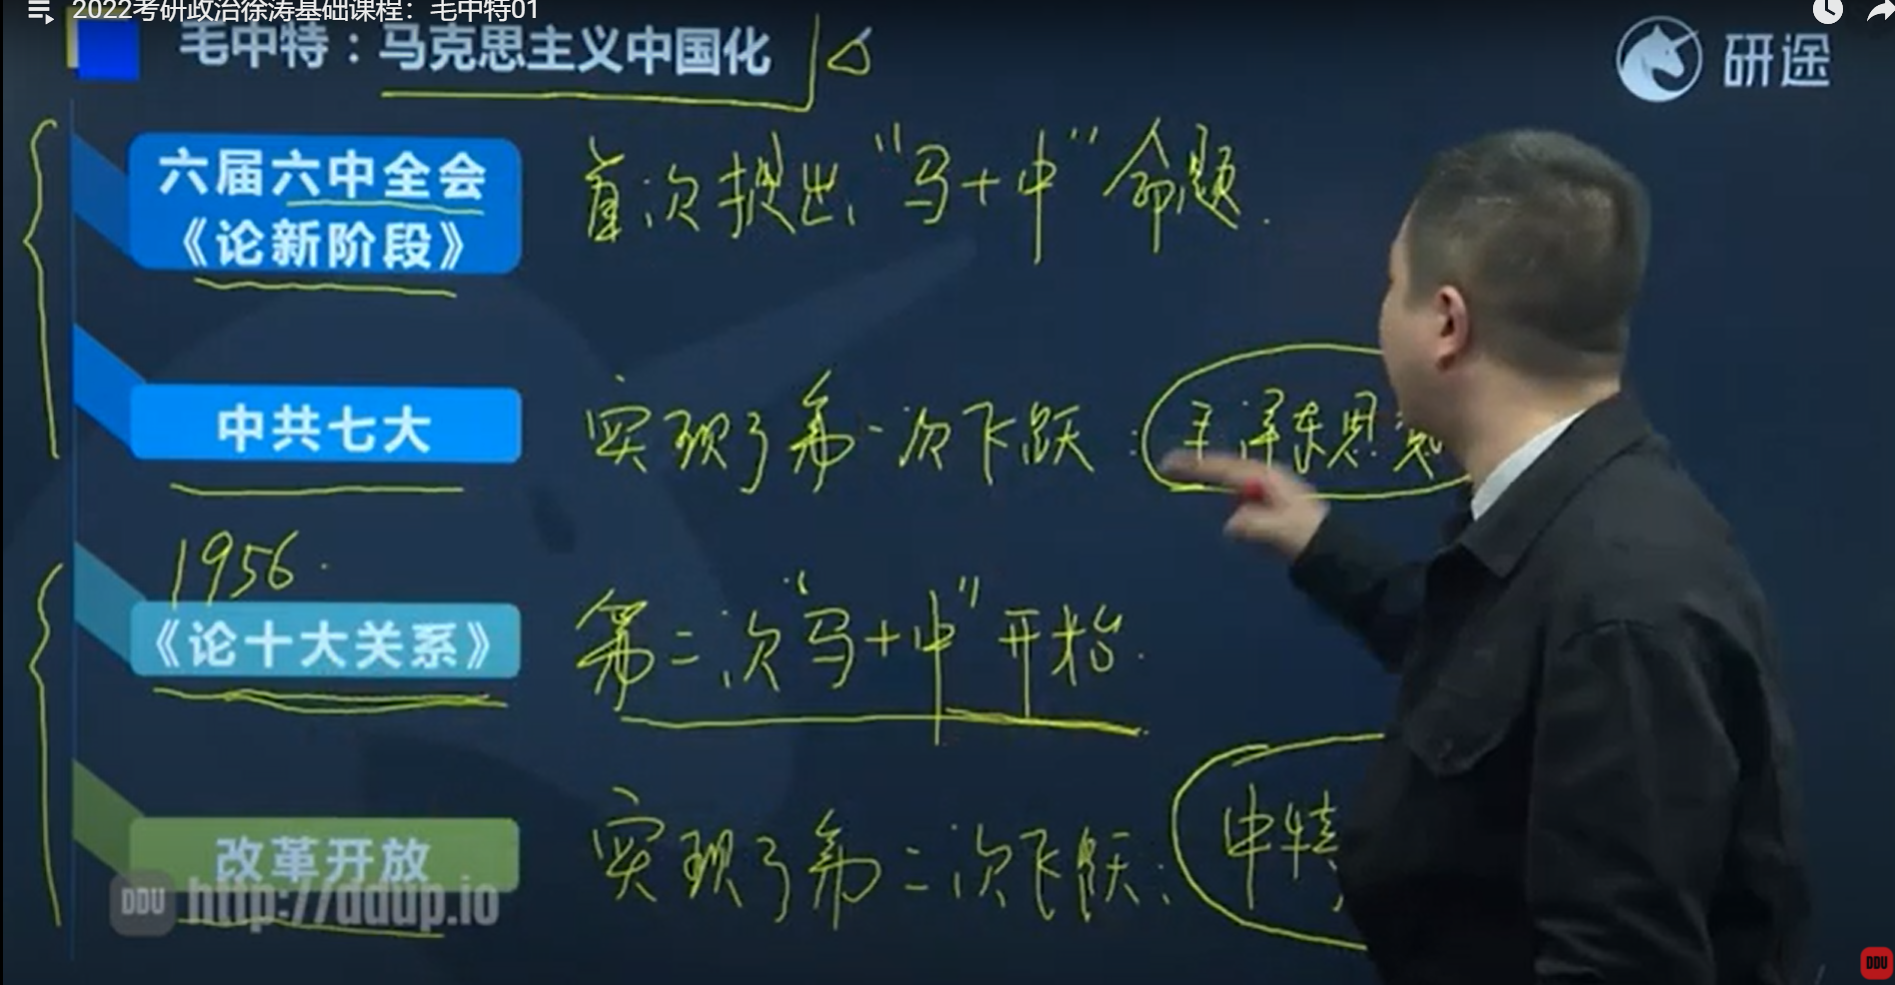 2022考研政治徐涛基础课程：毛中特01
毛中特：马克思主义中国化
研途
六届六中全会
《论新阶段》
首次提出“马+中”命题.
中共七大
实现了第一次飞跃：毛泽东思想
1956.
《论十大关系》
第二次“马+中”开始.
改革开放
实现了第二次飞跃：中特
DDU http://ddup.io
DDU